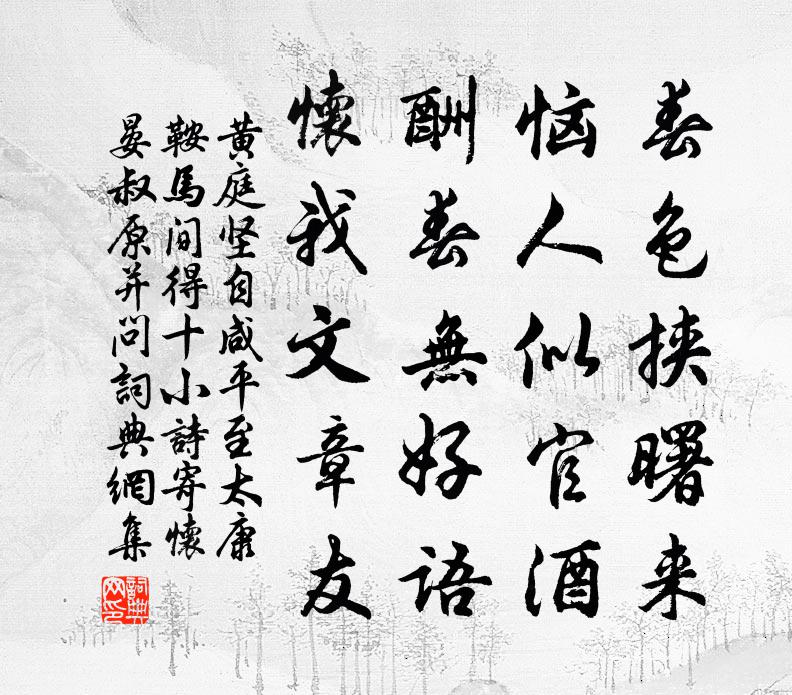 春色挟曙来
恼人似官酒
酬春無好语
懷我文章友
黄庭坚自咸平至太康
鞍馬间得十小詩寄懷
晏叔原并问詞典網集